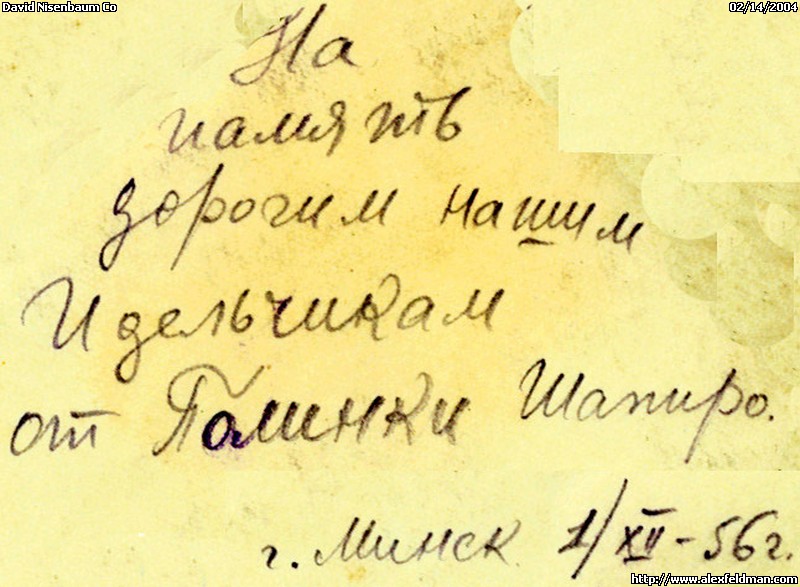 David Nisenbaum Co
02/14/2004
На
память
дорогим нашим
Идельчикам
от Полинки Шапиро.
г. Минск 1/XII-56г.
http://www.alexfeldman.com